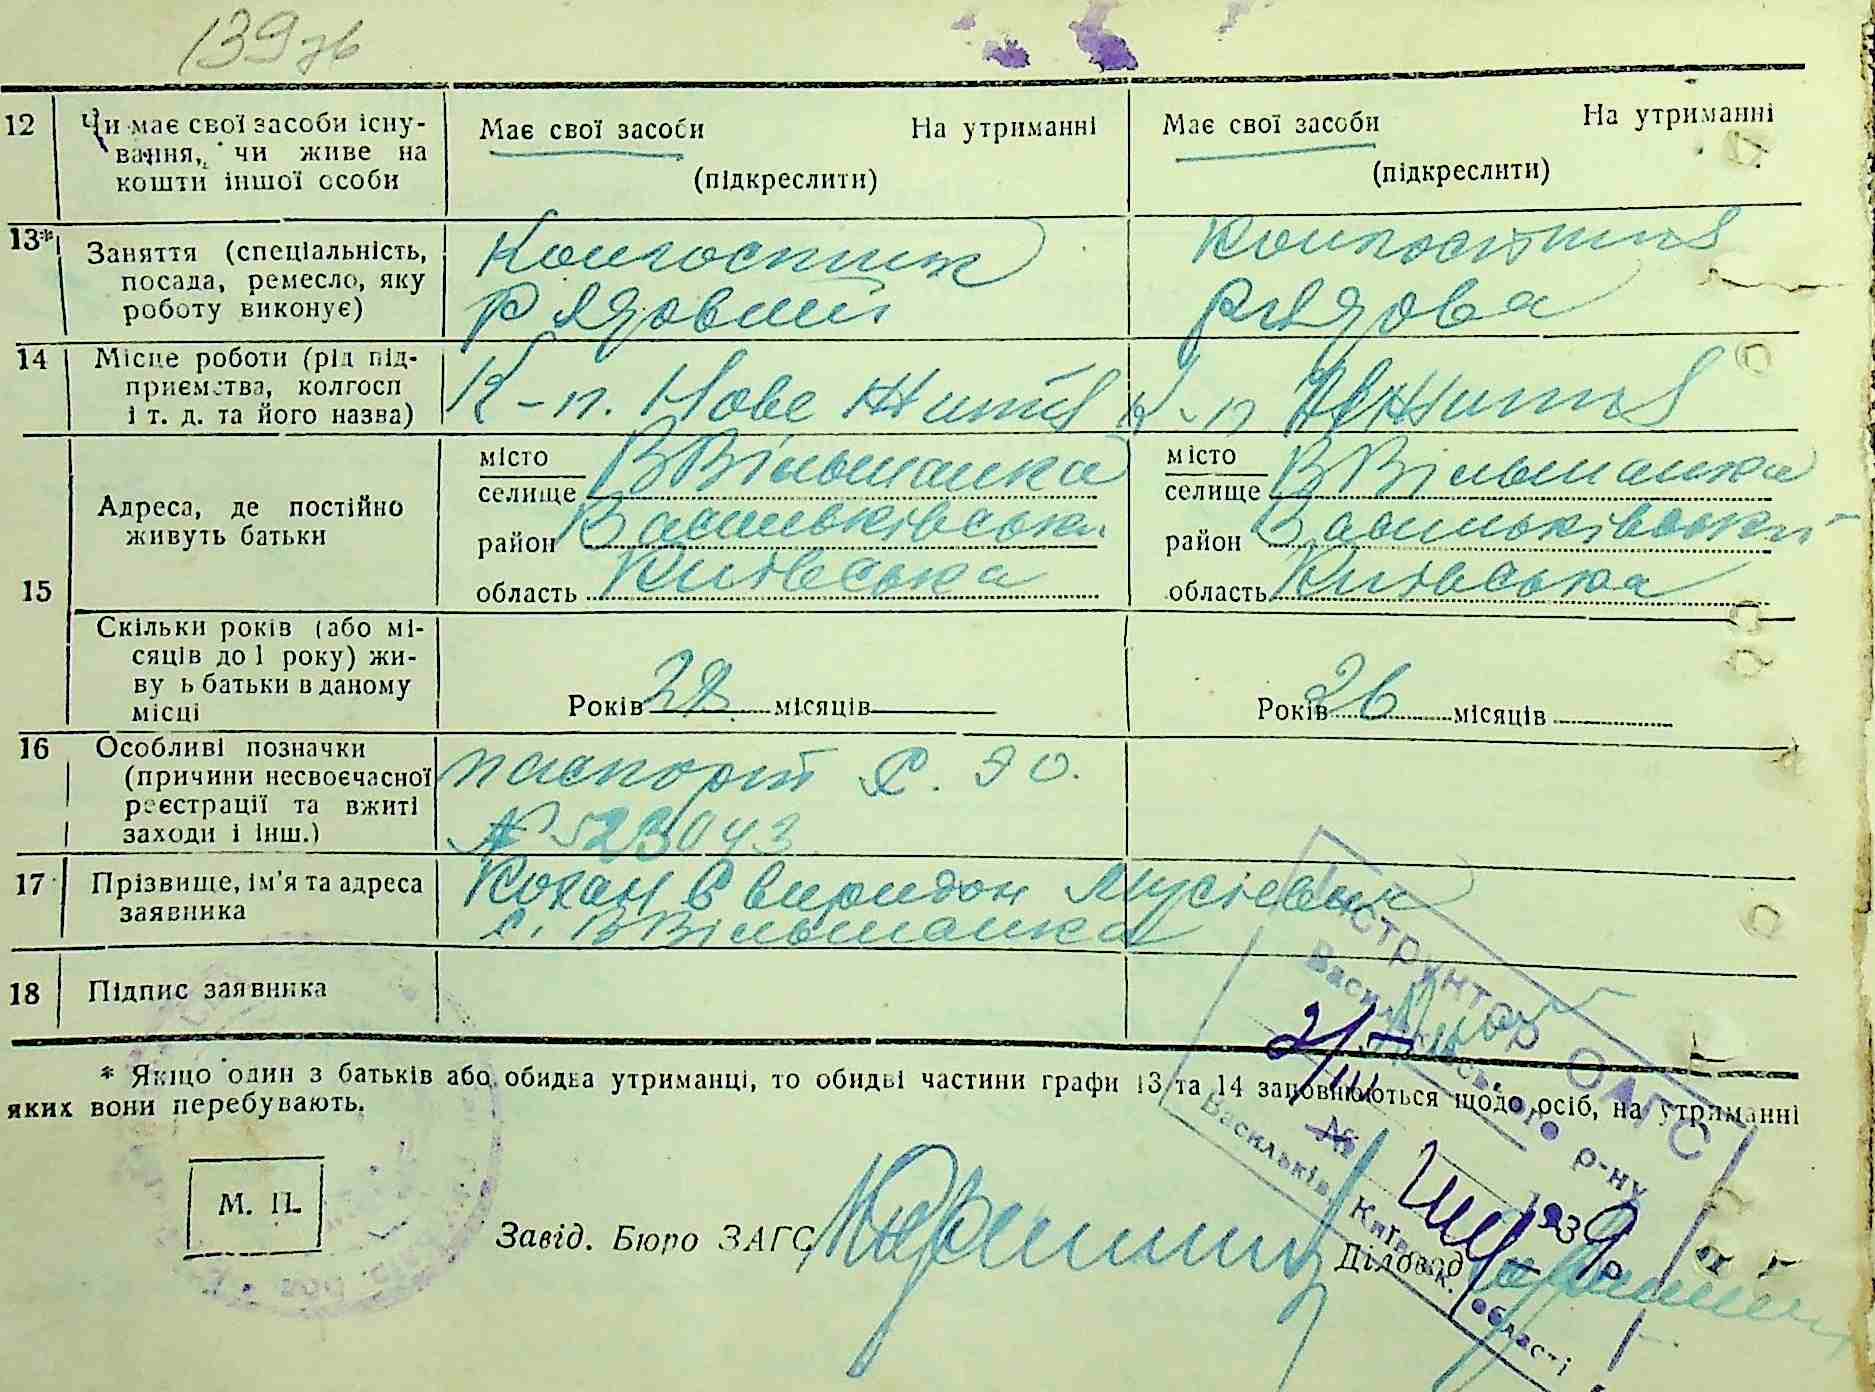 139 зв
12 Чи має свої засоби існу-
вання, чи живе на
кошти іншої особи
Має свої засоби На утриманні
(підкреслити)
Має свої засоби На утриманні
(підкреслити)
13* Заняття (спеціальність,
посада, ремесло, яку
роботу виконує)
Колгоспник
Рядовий
Колгоспниця
Рядова
14 Місце роботи (рід під-
приємства, колгосп
і т. д. та його назва)
К-п. Нове Життя
К-п Н Життя
15 Адреса, де постійно
живуть батьки
місто
селище ВВільшанка
район Васильківський
область Київська
місто
селище ВВільшанка
район Васильківський
область Київська
Скільки років (або мі-
сяців до 1 року) жи-
ву ь батьки в даному
місці
Років 28 місяців
Років 26 місяців
16 Особливі позначки
(причини несвоєчасної
реєстрації та вжиті
заходи і інш.)
паспорт
№ 523043
17 Прізвище, ім'я та адреса
заявника
Кохан Свиридон Мусієвич
с. ВВільшанка
18 Підпис заявника
* Якщо один з батьків або обидва утриманці, то обидві частини графи 13 та 14 заповнюються щодо осіб, на утриманні
яких вони перебувають.
М. П.
Завід. Бюро ЗАГС
Діловод
Інструктор ОАГС
Васильківського р-ну
Васильків, Київськ. області
№
1939 р.